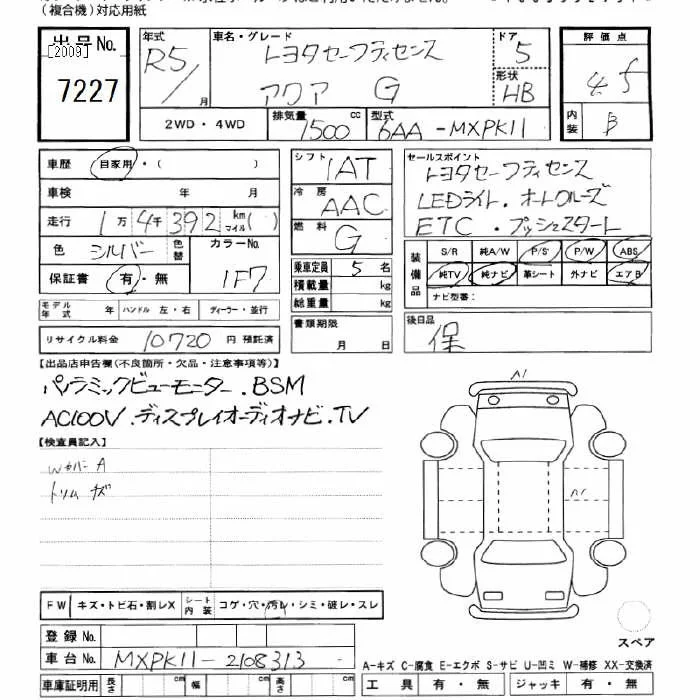 (複合機)対応用紙
出品No. [2009] 7227
年式 R5/ 月
車名・グレード トヨタセーフティセンス
アクア G
ドア 5
形状 HB
2WD・4WD 排気量 1500 cc 型式 6AA-MXPK11
評価点 4.5
内装 B
車歴 自家用・( )
車検 年 月
走行 1万4千392 km マイル( )
色 シルバー 色替 カラーNo. 1F7
保証書 有・無
モデル年式 年 ハンドル 左・右 ディーラー・並行
リサイクル料金 10720 円 預託済
シフト 1AT
冷房 AAC
燃料 G
乗車定員 5 名
積載量 kg
総重量 kg
書類期限 月 日
セールスポイント
トヨタセーフティセンス
LEDライト・オートクルーズ
ETC・プッシュスタート
装備品 S/R 純A/W P/S P/W ABS
純TV 純ナビ 革シート 外ナビ エアB
ナビ型番:
後日品
保
【出品店申告欄(不良箇所・欠品・注意事項等)】
パノラミックビューモニター.BSM
AC100V.ディスプレイオーディオナビ.TV
【検査員記入】
Wカバー A
トリム キズ
A1
A1
FW キズ・トビ石・割レX シート内装 コゲ・穴・汚レ・シミ・破レ・スレ
登録No.
車台No. MXPK11-2108313
スペア
A-キズ C-腐食 E-エクボ S-サビ U-凹ミ W-補修 XX-交換済
車庫証明用 長さ cm 幅 cm 高さ cm
工具 有・無 ジャッキ 有・無